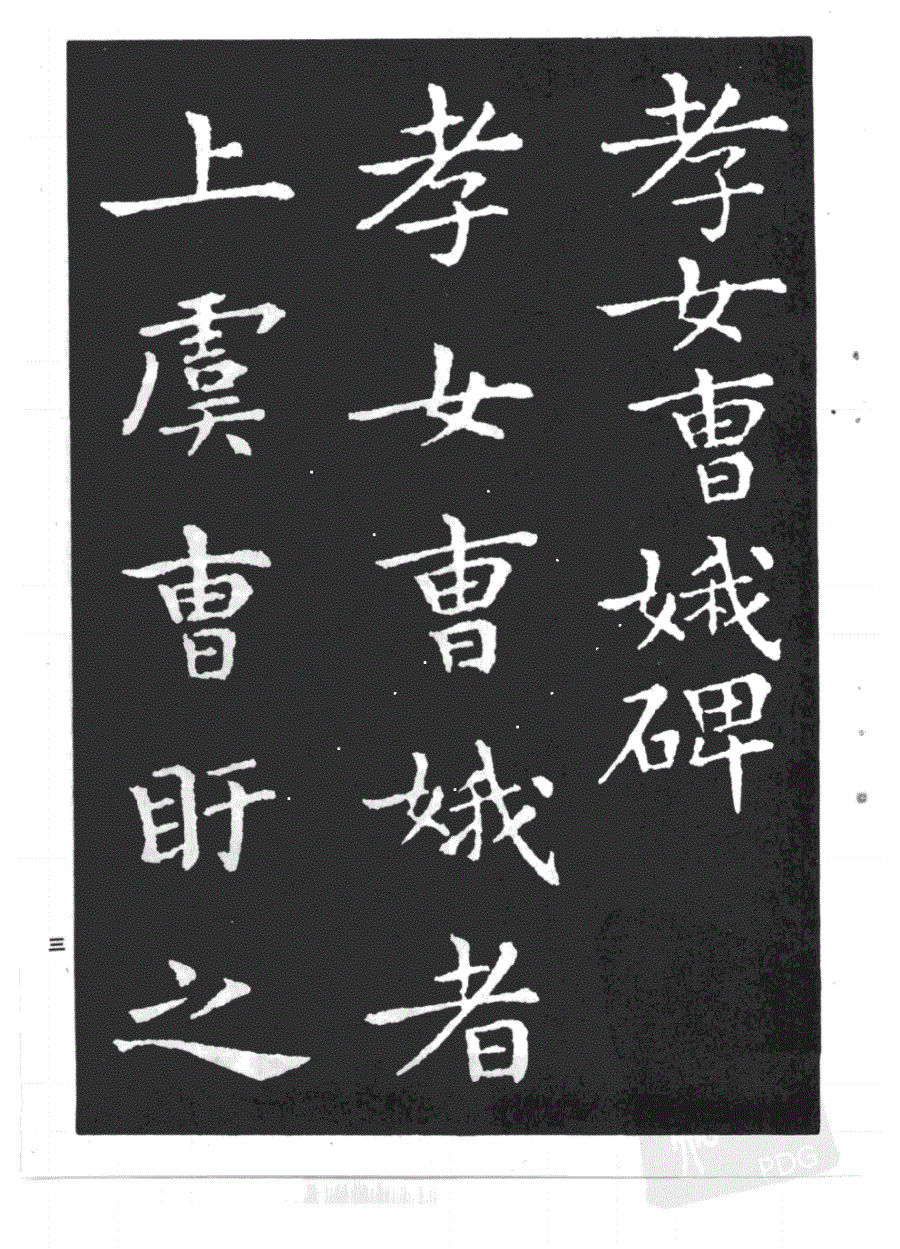 孝女曹娥碑
孝女曹娥者
上虞曹盱之
三
PDG